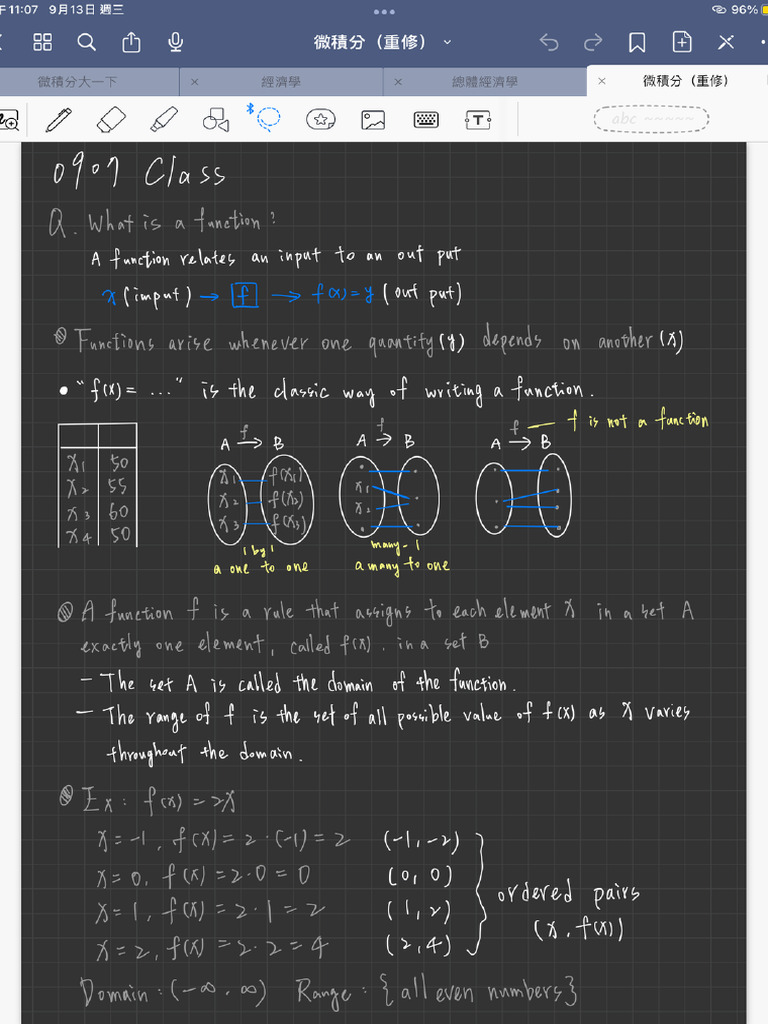 11:07 9月13日 週三
96%
微積分（重修）
微積分大一下
× 經濟學
× 總體經濟學
× 微積分（重修）
T
abc ~~~~~
0907 Class
Q. What is a function?
A function relates an input to an out put
x (imput) → f → f(x)=y (out put)
Functions arise whenever one quantity (y) depends on another (x)
• "f(x)= ..." is the classic way of writing a function.
f f f — f is not a function
A → B A → B A → B
x1 50
x2 55
x3 60
x4 50
x1 f(x1)
x2 f(x2)
x3 f(x3)
x1
x2
1 by 1
a one to one
many-1
a many to one
A function f is a rule that assigns to each element x in a set A
exactly one element, called f(x). in a set B
- The set A is called the domain of the function.
- The range of f is the set of all possible value of f(x) as x varies
throughout the domain.
Ex: f(x)=2x
x=-1, f(x)=2·(-1)=2 (-1,-2)
x=0, f(x)=2·0=0 (0,0)
x=1, f(x)=2·1=2 (1,2)
x=2, f(x)=2·2=4 (2,4)
ordered pairs
(x, f(x))
Domain: (-∞, ∞) Range: {all even numbers}